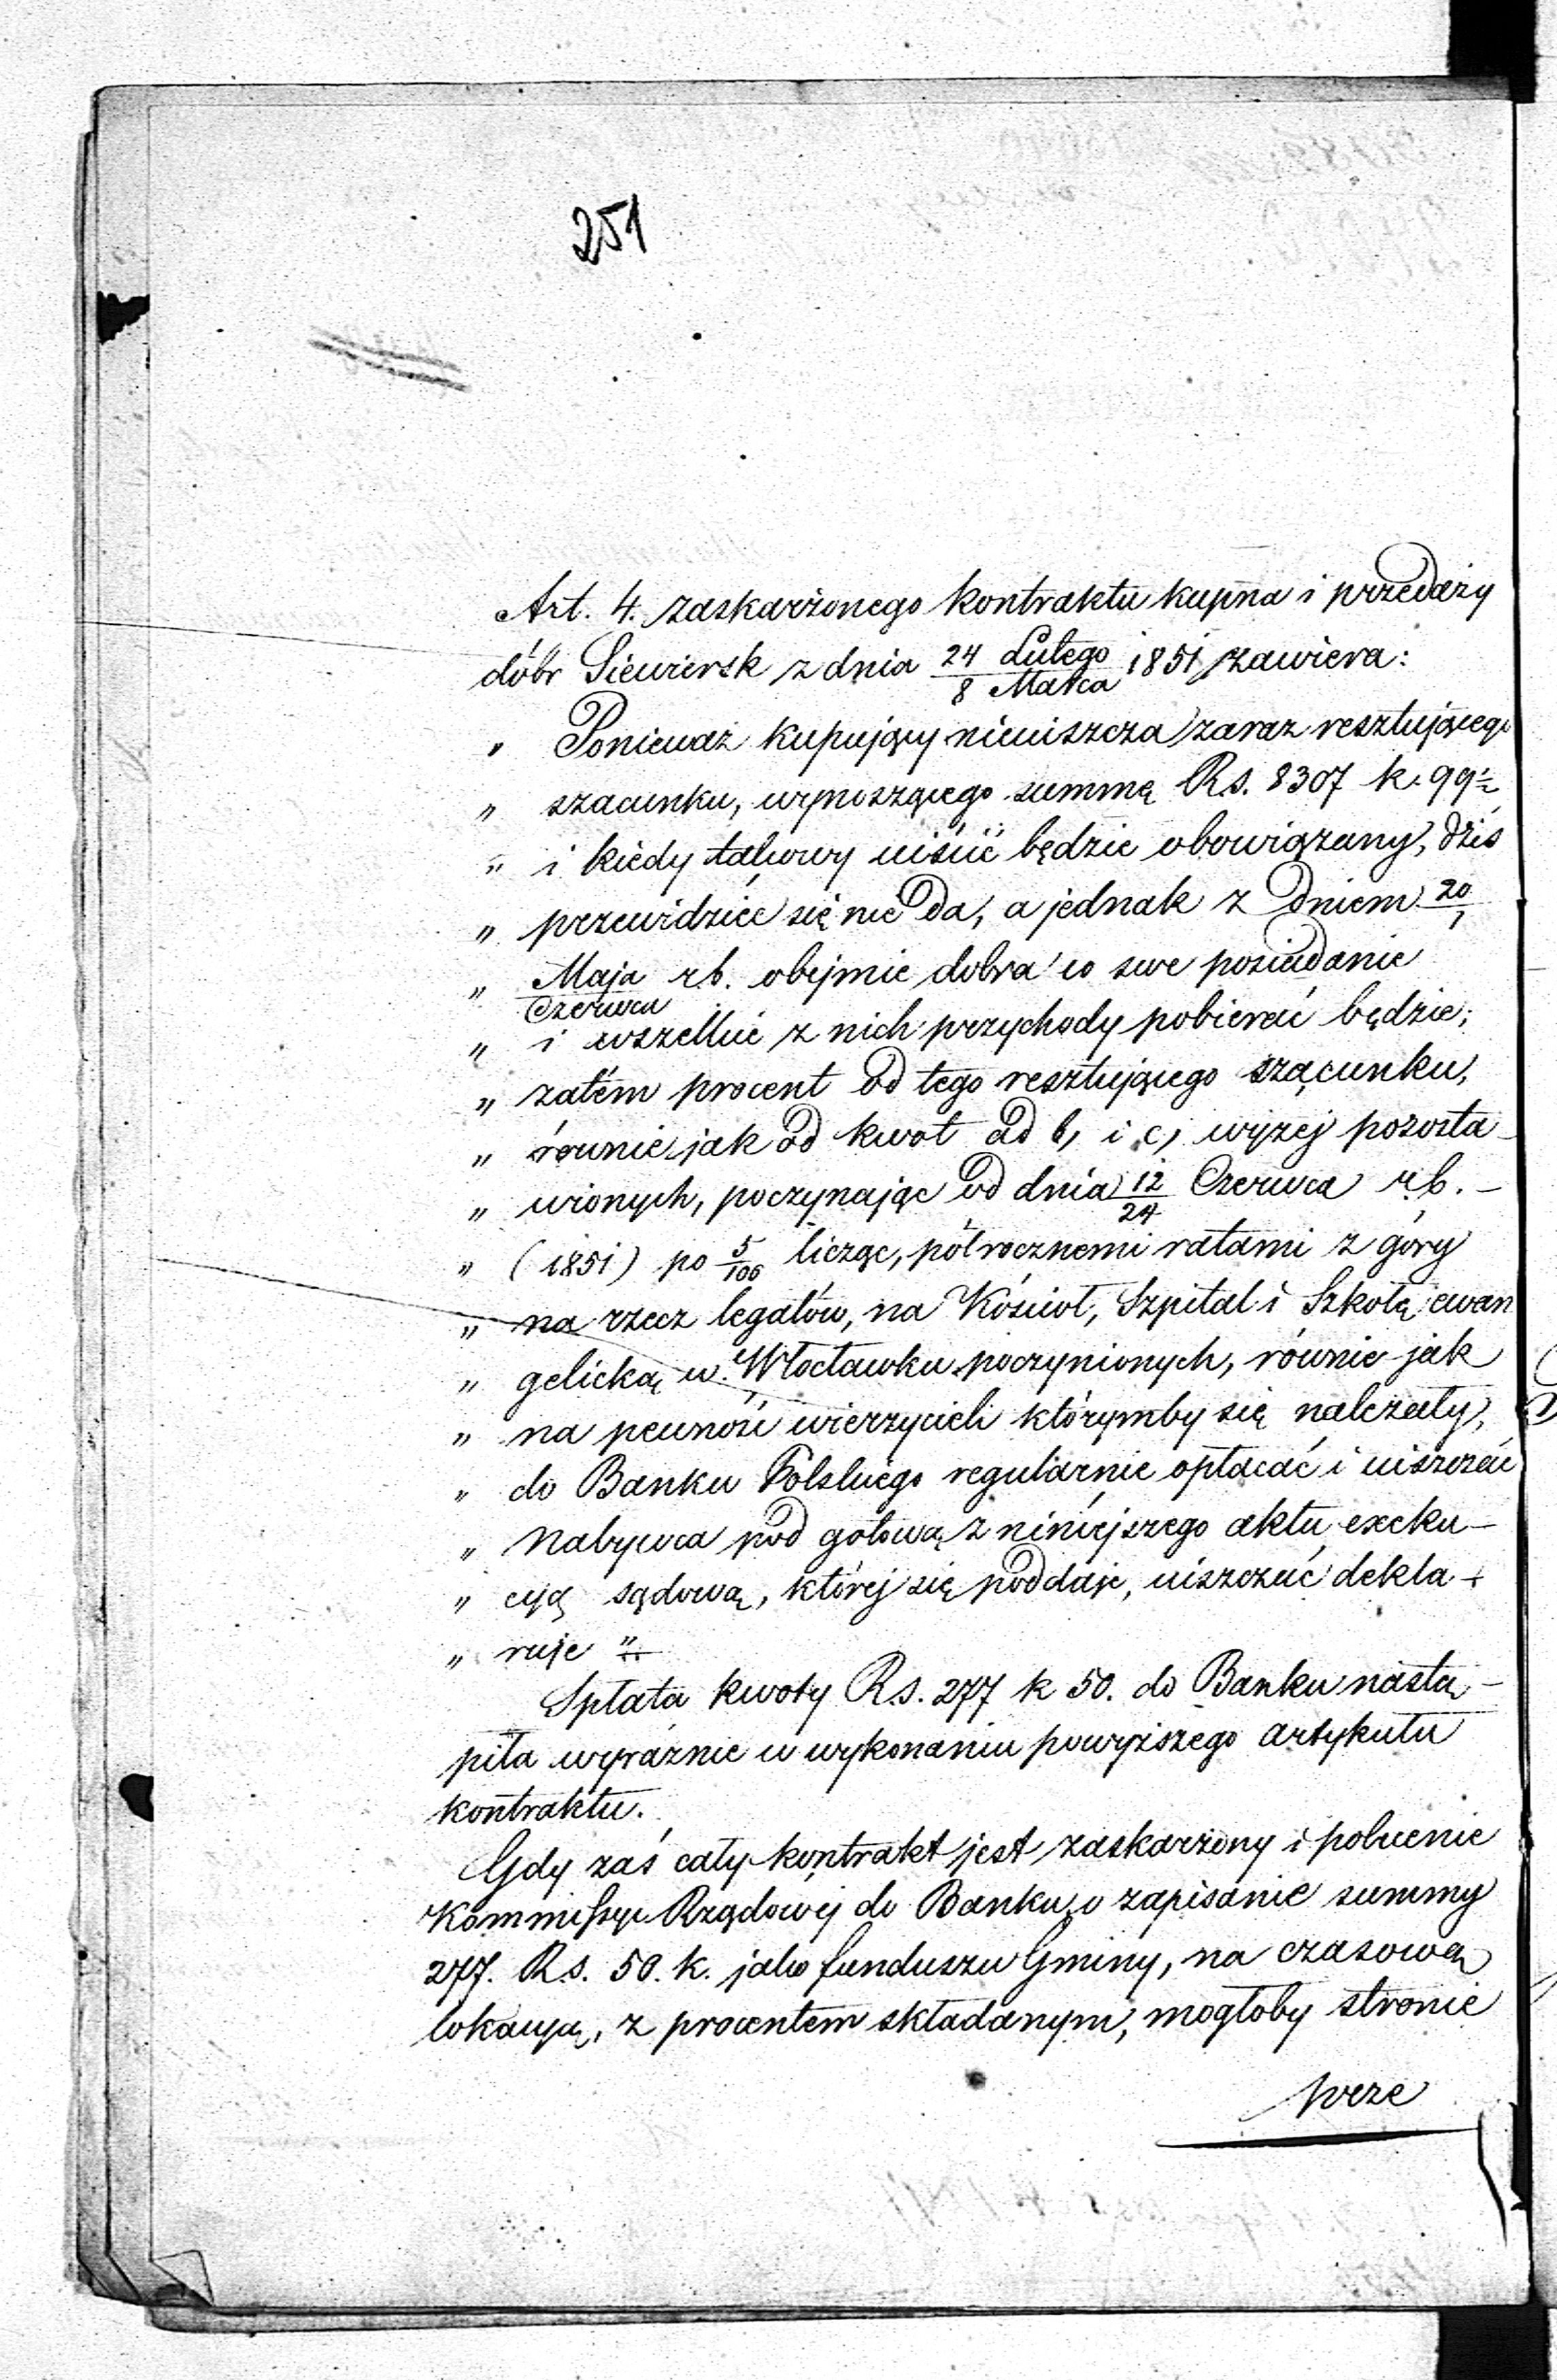 251
Art. 4. zaskarżonego kontraktu kupna i przedaży
dóbr Siewiersk z dnia 24 Lutego / 8 Marca 1851 zawiera:
„ Ponieważ kupujący nieuiszcza zaraz resztującego
„ szacunku, wynoszącego summę Rs. 8307 k. 99½
„ i kiedy takowy uiścić będzie obowiązany, dziś
„ przewidzieć się nie da, a jednak z dniem 20/1
„ Maja/Czerwca r.b. obejmie dobra w swe posiadanie
„ i wszelkie z nich przychody pobierać będzie;
„ zatém procent od tego resztującego szacunku,
„ równie jak od kwot ad b, i c, wyżej pozosta-
„ wionych, poczynając od dnia 12/24 Czerwca r.b. –
„ (1851) po 5/100 licząc, półrocznemi ratami z góry
„ na rzecz legatów, na Kościoł, Szpital i Szkołę ewan
„ gelicką w Włocławku poczynionych, równie jak
„ na pewność wierzycieli którymby się należały,
„ do Banku Polskiego regularnie opłacać i uiszczać
„ nabywca pod gotową z niniejszego aktu exeku-
„ cyą sądową, której się poddaje, uiszczać dekla-
„ ruje „
Spłata kwoty Rs. 277 k 50. do Banku nastą-
piła wyraźnie w wykonaniu powyższego artykułu
kontraktu.
Gdy zaś cały kontrakt jest zaskarżony i polecenie
Kommissyi Rządowéj do Banku o zapisanie summy
277. Rs. 50. k. jako funduszu Gminy, na czasową
lokacyą, z procentem składanym, mogłoby stronie
prze